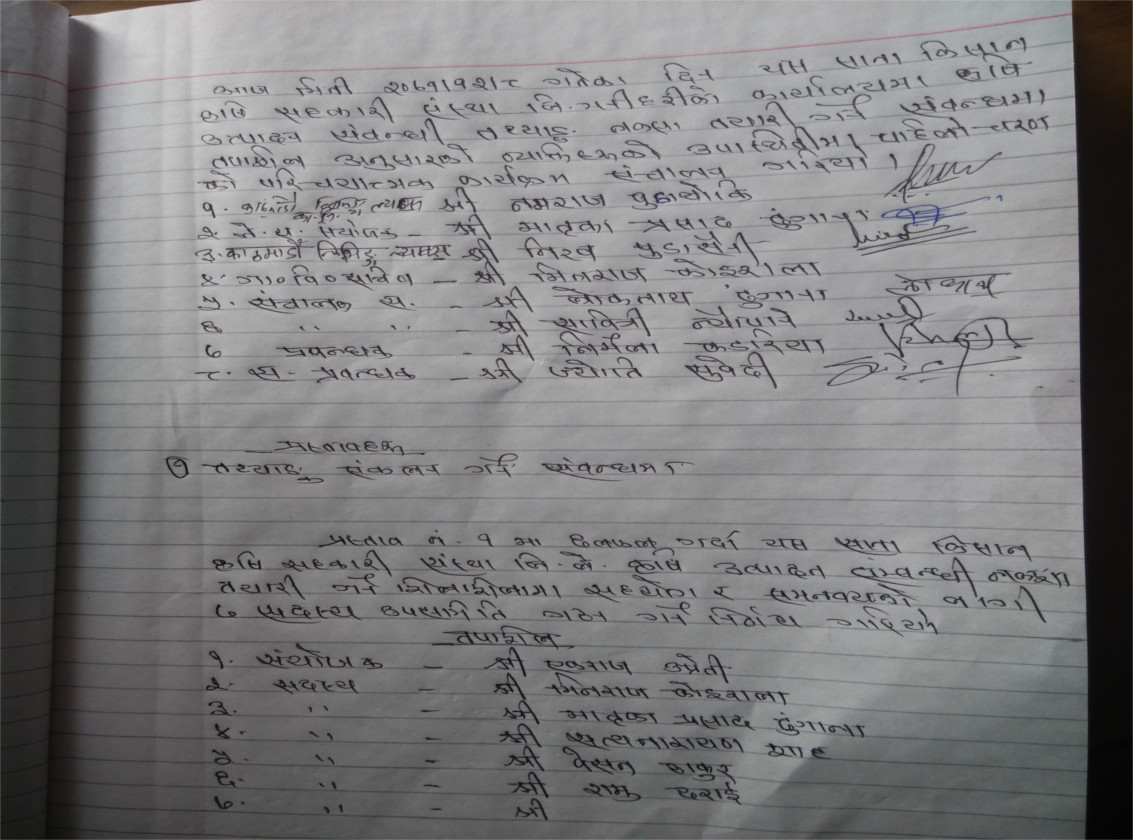 आज मिती २०७१।१२।१८ गतेका दिन यस साना किसान
कृषि सहकारी संस्था लि. को कार्यालयमा कृषि
उत्पादन संवन्धी तथ्याङ्क नक्सा तयारी गर्ने संवन्धमा
तपाशिल अनुसारको व्यक्तिहरुको उपास्थितीमा पाहिलो चरण
को परिचयात्मक कार्यक्रम संचालन गरियो।
१. श्री नमराज पुडाशैनि
२. ने. स. संयोजक - श्री मातृका प्रसाद ढुंगाना
३. काठमाडौं लिभिङ्ग ल्याव्स श्री निरव पुडासैनी
४. गा०वि०सचिव - श्री मिनराज कोइराला
५. संचालक स. - श्री लोकनाथ ढुंगाना लोकनाथ
६ " " - श्री सावित्री न्यौपाने
७ प्रवन्धक - श्री निर्मला कडरिया
८. स. प्रवन्धक - श्री ज्योति सुवेदी
प्रस्तावहरु
① तथ्याङ्क संकलन गर्ने संवन्धमा
प्रस्ताव नं. १ मा छलफल गर्दा यस साना किसान
कृषि सहकारी संस्था लि. ले कृषि उत्पादन संवन्धी नक्शा
तयारी गर्ने शिलाशिलामा सहयोग र समनवयको लागी
७ सदस्य उपसमिति गठन गर्ने निर्णय गरियो
तपाशिल
१. संयोजक - श्री एकराज उप्रेती
२. सदस्य - श्री मिनराज कोइराला
३. " - श्री मातृका प्रसाद ढुंगाना
४. " - श्री सत्यनारायण शाह
५. " - श्री वेसन ठाकुर
६. " - श्री रामु दराई
७. " - श्री